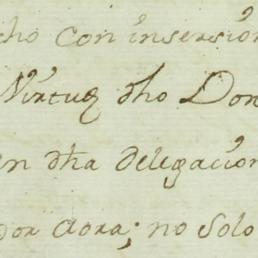 cho con insersion
Virtuq dho Don
en dha delegacion
dor aora; no solo